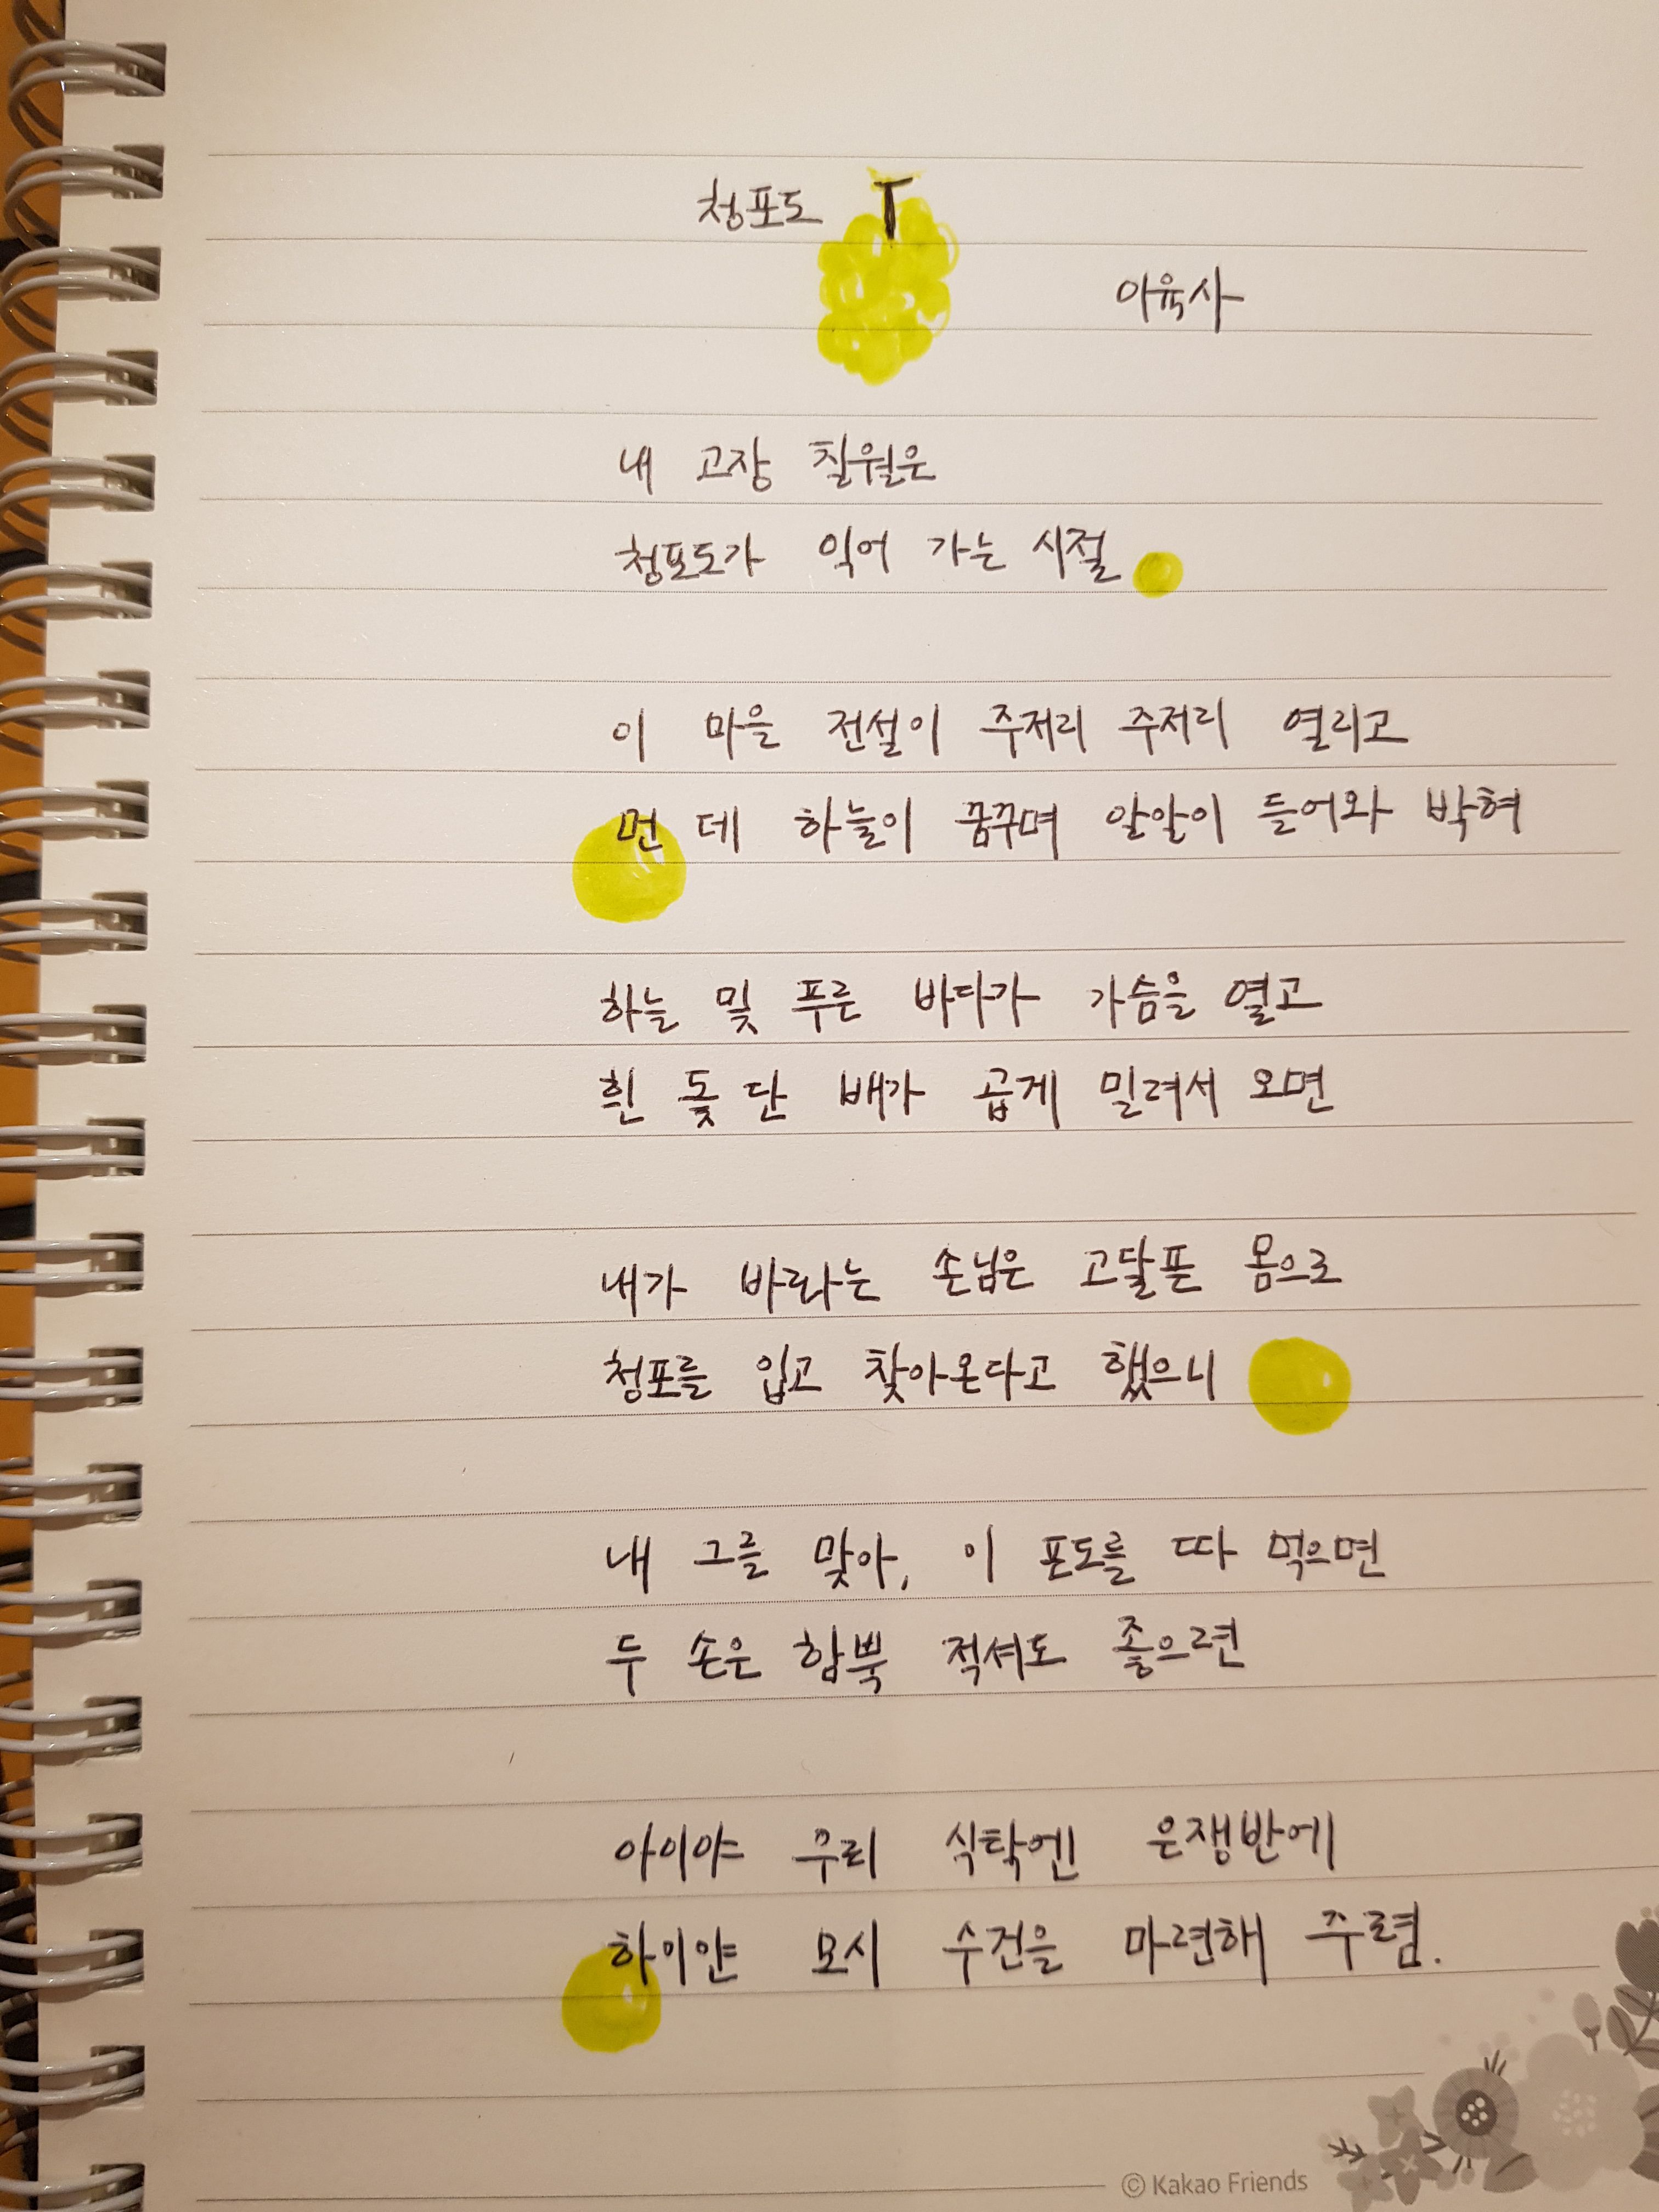 청포도
이육사
내 고장 칠월은
청포도가 익어 가는 시절
이 마을 전설이 주저리 주저리 열리고
먼 데 하늘이 꿈꾸며 알알이 들어와 박혀
하늘 밑 푸른 바다가 가슴을 열고
흰 돛 단 배가 곱게 밀려서 오면
내가 바라는 손님은 고달픈 몸으로
청포를 입고 찾아온다고 했으니
내 그를 맞아, 이 포도를 따 먹으면
두 손은 함뿍 적셔도 좋으련
아이야 우리 식탁엔 은쟁반에
하이얀 모시 수건을 마련해 주렴.
© Kakao Friends